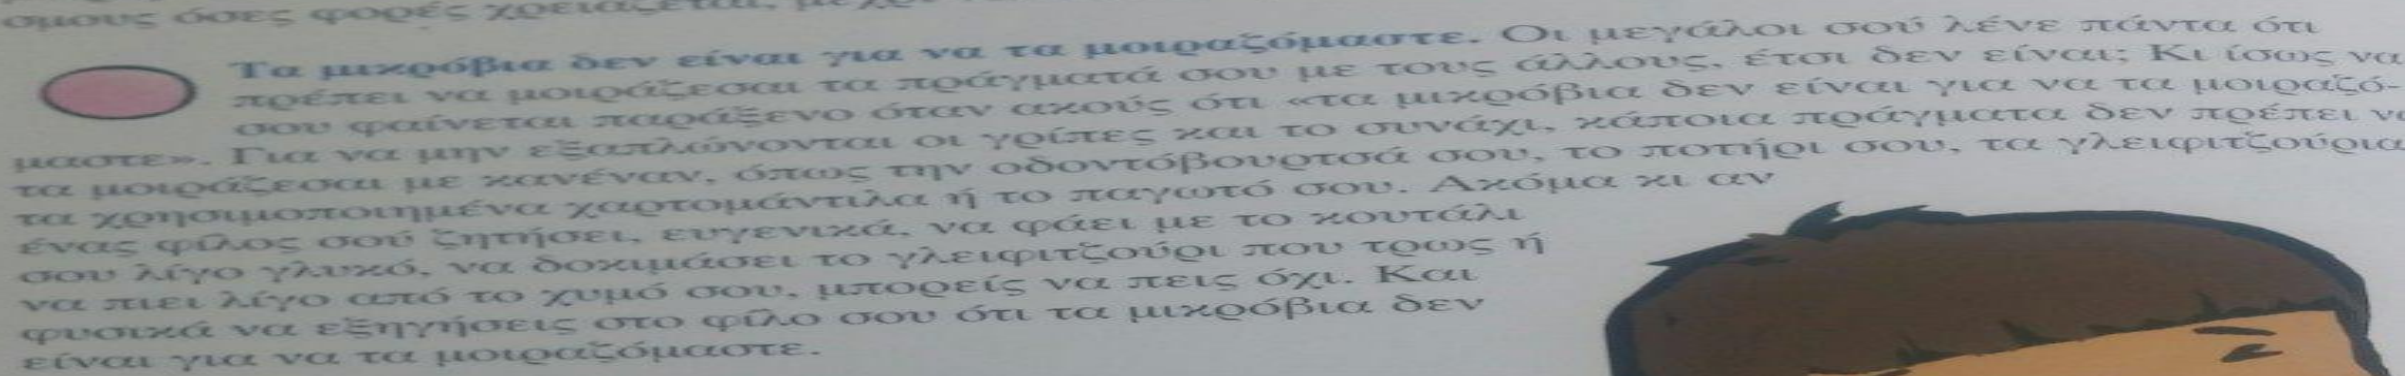 σμους όσες φορές χρειάζεται,
Τα μικρόβια δεν είναι για να τα μοιραζόμαστε. Οι μεγάλοι σού λένε πάντα ότι
πρέπει να μοιράζεσαι τα πράγματά σου με τους άλλους, έτσι δεν είναι; Κι ίσως να
σου φαίνεται παράξενο όταν ακούς ότι «τα μικρόβια δεν είναι για να τα μοιραζό-
μαστε». Για να μην εξαπλώνονται οι γρίπες και το συνάχι, κάποια πράγματα δεν πρέπει να
τα μοιράζεσαι με κανέναν, όπως την οδοντόβουρτσά σου, το ποτήρι σου, τα γλειφιτζούρια
τα χρησιμοποιημένα χαρτομάντιλα ή το παγωτό σου. Ακόμα κι αν
ένας φίλος σού ζητήσει, ευγενικά, να φάει με το κουτάλι
σου λίγο γλυκό, να δοκιμάσει το γλειφιτζούρι που τρως ή
να πιει λίγο από το χυμό σου, μπορείς να πεις όχι. Και
φυσικά να εξηγήσεις στο φίλο σου ότι τα μικρόβια δεν
είναι για να τα μοιραζόμαστε.